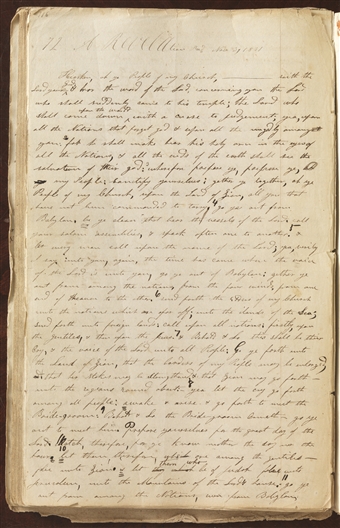 72 A Revelation Nov 3, 1831
Hearken, O ye People of my Church, with the
Lord your God, & hear the word of the Lord, concerning you the Lord
who shall suddenly come to his temple; the Lord who
upon the world
shall come down with a curse to judgement; yea, upon
all the Nations that forget God & upon all the ungodly among
you; for he shall make bare his holy arm in the eyes of
all the Nations, & all the ends of the earth shall see the
salvation of their God; wherefore prepare ye, prepare ye,
my People; sanctify yourselves; gather ye together, O ye
People of my Church, upon the Land of Zion, all you that
have not been commanded to tarry, 4 go ye out from
Babylon, be ye clean that bear the vessels of the Lord; call
your solemn assemblies, & speak often one to another, 5 &
let every man call upon the name of the Lord; yea, verily
I say unto you, again, the time has come when the voice
of the Lord is unto you, go ye out of Babylon; gather ye
out from among the nations, from the four winds, from one
end of Heaven to the other 6 send forth the Elders of my Church
unto the nations which are afar off; unto the Islands of the Sea;
send forth unto foreign lands; call upon all nations; firstly, upon
the Gentiles, & then upon the Jews 7 & Behold & Lo this shall be their
cry, & the voice of the Lord unto all People; Go ye forth unto
the Land of Zion, that the borders of my People may be enlarged
& that her Stakes may be strengthened & that Zion may go forth
unto the regions round about 8 yea let the cry go forth
among all people; awake & arise & go forth to meet the
Bridegroom; 9 Behold & Lo the Bridegroom cometh go ye
out to meet him, prepare yourselves for the great day of the
Lord 10 Watch, therefore, for ye know neither the day nor the
hour let them, therefore, who are among the gentiles
flee unto Zion & let them who be of Judah flee unto
Jerusalem, unto the Mountains of the Lord's house 11 go ye
out from among the Nations, even from Babylon